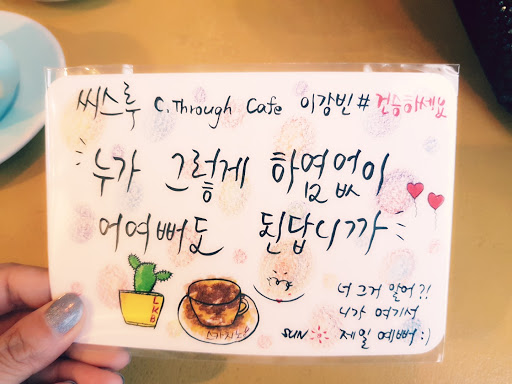 씨스루 C.Through Cafe 이강빈 #건승하세요
누가 그렇게 하염없이
어여뻐도 된답니까
너 그거 알어?!
니가 여기서
제일 예뻐 :)
LKB
SUN